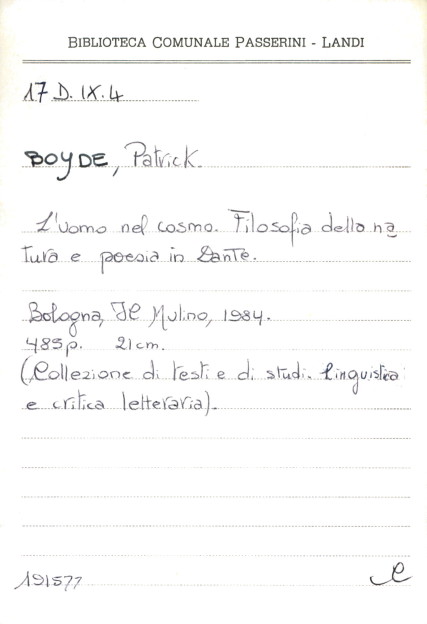 BIBLIOTECA COMUNALE PASSERINI - LANDI
17 D. IX. 4
BOYDE, Patrick.
L'uomo nel cosmo. Filosofia della na
tura e poesia in Dante.
Bologna, Il Mulino, 1984.
485p. 21cm.
(Collezione di testi e di studi. Linguistica
e critica letteraria).
191577
e